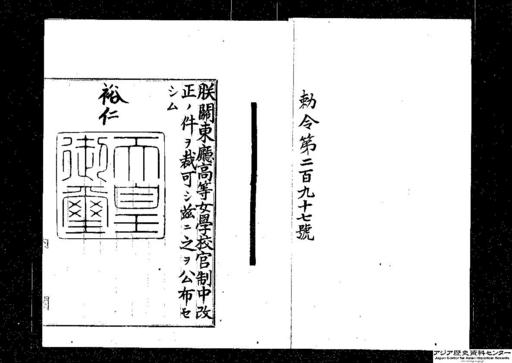 勅令第二百九十七號
朕關東廳高等女學校官制中改
正ノ件ヲ裁可シ茲ニ之ヲ公布セ
シム
裕仁
天皇
御璽
アジア歴史資料センター
Japan Center for Asian Historical Records